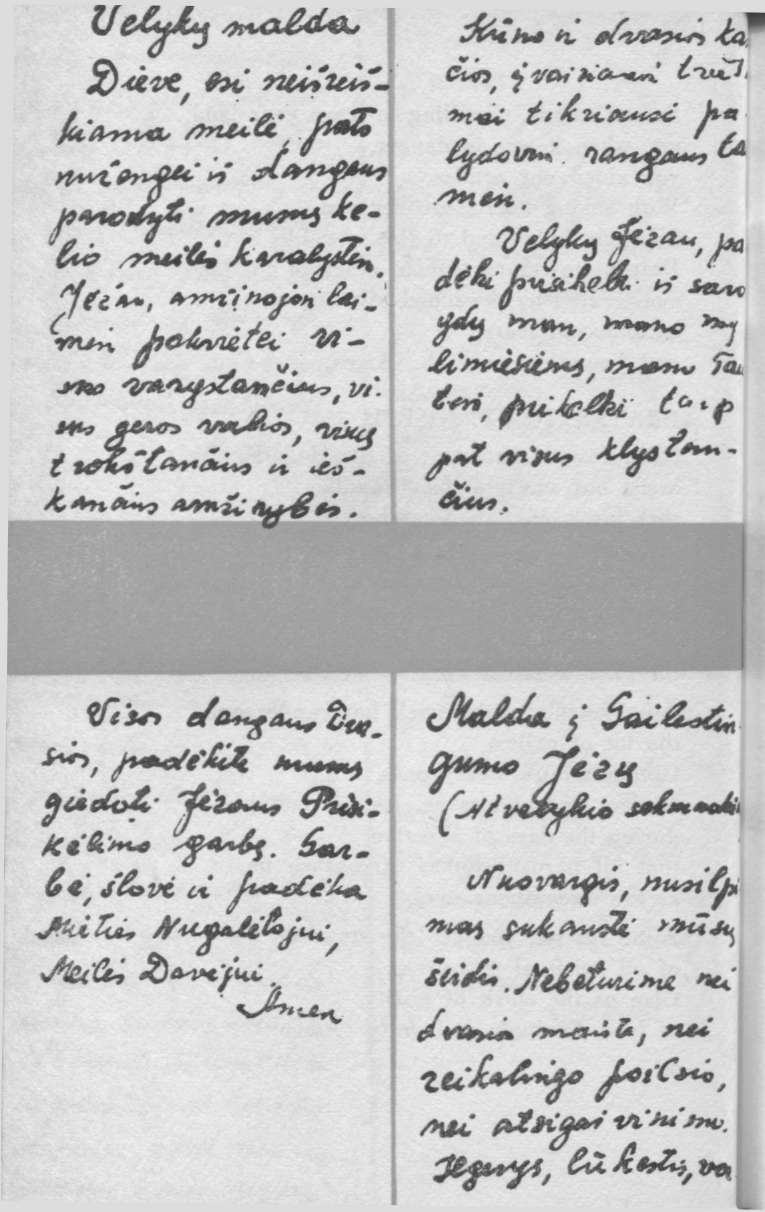 Velykų malda
Dieve, esi neišreiš-
kiama meilė, pats
nužengei iš dangaus
parodyti mums ke-
lio meilės karalystėn.
Jėzau, amžinojon lai-
mėn pakvietei vi-
sus vargstančius, vi-
sus geros valios, visus
trokštančius ir ieš-
kančius amžinybės.
Kūno ir dvasios ka
čios, įvairiausi trūk
mai tikriausi pa
lydovai. dangaus ta
men.
Velykų Jėzau, pa
dėki prisikelti iš savo
ydų man, mano my
limiesiems, mano Tau
tai, prikelki taip
pat visus klystan-
čius.
Visos dangaus Dva-
sios, padėkite mums
giedoti Jėzaus Prisi-
kėlimo garbę. Gar-
bė, šlovė ir padėka
Mirties Nugalėtojui,
Meilės Davėjui.
Amen
Malda į Gailestin
gumo Jėzų
(Atvelykio sekmadi
Nuovargis, nusilpi
mas sukaustė mūsų
širdis. Nebeturime nei
dvasios maisto, nei
reikalingo poilsio,
nei atsigaivinimo.
Ilgesys, lūkestis, va